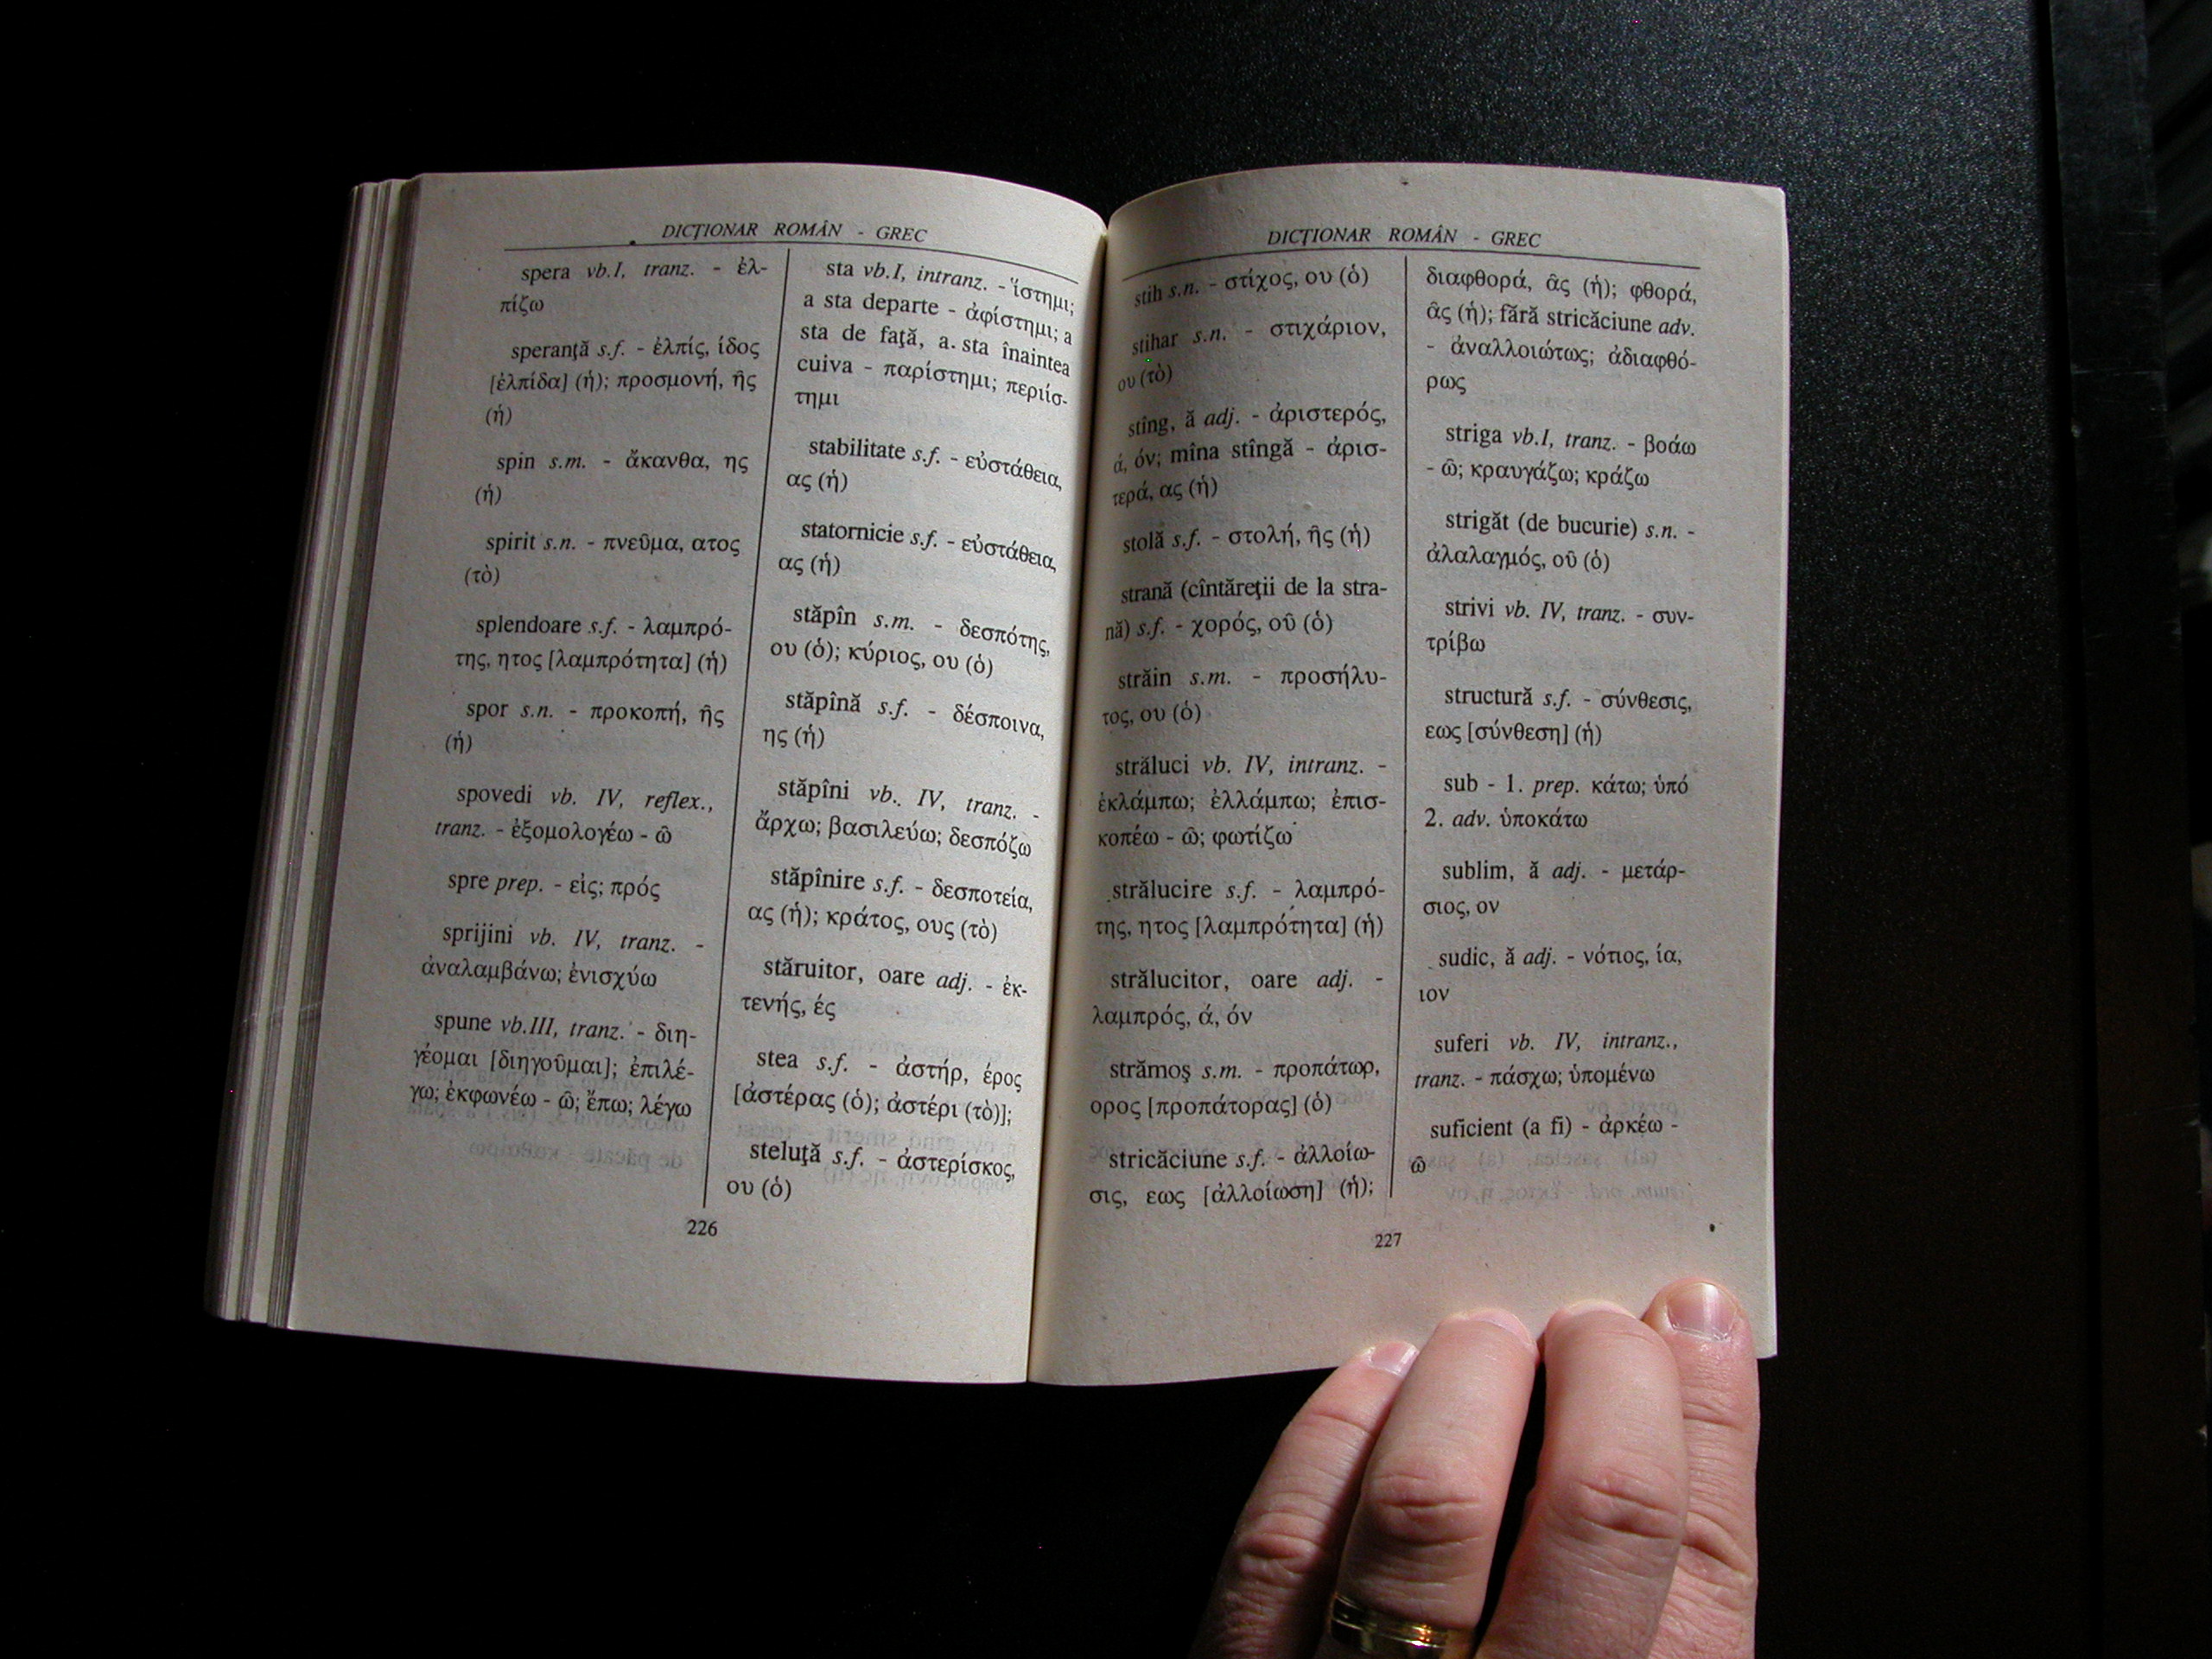 DICŢIONAR ROMÂN - GREC
spera vb.I, tranz. - ἐλ-
πίζω
speranţă s.f. - ἐλπίς, ίδος
[ἐλπίδα] (ἡ); προσμονή, ῆς
(ἡ)
spin s.m. - ἄκανθα, ης
(ἡ)
spirit s.n. - πνεῦμα, ατος
(τὸ)
splendoare s.f. - λαμπρό-
της, ητος [λαμπρότητα] (ἡ)
spor s.n. - προκοπή, ῆς
(ἡ)
spovedi vb. IV, reflex.,
tranz. - ἐξομολογέω - ῶ
spre prep. - εἰς; πρός
sprijini vb. IV, tranz. -
ἀναλαμβάνω; ἐνισχύω
spune vb.III, tranz. - διη-
γέομαι [διηγοῦμαι]; ἐπιλέ-
γω; ἐκφωνέω - ῶ; ἔπω; λέγω
sta vb.I, intranz. - ἵστημι;
a sta departe - ἀφίστημι; a
sta de faţă, a sta înaintea
cuiva - παρίστημι; περιίσ-
τημι
stabilitate s.f. - εὐστάθεια,
ας (ἡ)
statornicie s.f. - εὐστάθεια,
ας (ἡ)
stăpîn s.m. - δεσπότης,
ου (ὁ); κύριος, ου (ὁ)
stăpînă s.f. - δέσποινα,
ης (ἡ)
stăpîni vb. IV, tranz. -
ἄρχω; βασιλεύω; δεσπόζω
stăpînire s.f. - δεσποτεία,
ας (ἡ); κράτος, ους (τὸ)
stăruitor, oare adj. - ἐκ-
τενής, ές
stea s.f. - ἀστήρ, έρος
[ἀστέρας (ὁ); ἀστέρι (τὸ)];
steluţă s.f. - ἀστερίσκος,
ου (ὁ)
226
DICŢIONAR ROMÂN - GREC
stih s.n. - στίχος, ου (ὁ)
stihar s.n. - στιχάριον,
ου (τὸ)
stîng, ă adj. - ἀριστερός,
ά, όν; mîna stîngă - ἀρισ-
τερά, ας (ἡ)
stolă s.f. - στολή, ῆς (ἡ)
strană (cîntăreţii de la stra-
nă) s.f. - χορός, οῦ (ὁ)
străin s.m. - προσήλυ-
τος, ου (ὁ)
străluci vb. IV, intranz. -
ἐκλάμπω; ἐλλάμπω; ἐπισ-
κοπέω - ῶ; φωτίζω
strălucire s.f. - λαμπρό-
της, ητος [λαμπρότητα] (ἡ)
strălucitor, oare adj. -
λαμπρός, ά, όν
strămoş s.m. - προπάτωρ,
ορος [προπάτορας] (ὁ)
stricăciune s.f. - ἀλλοίω-
σις, εως [ἀλλοίωση] (ἡ);
διαφθορά, ᾶς (ἡ); φθορά,
ᾶς (ἡ); fără stricăciune adv.
- ἀναλλοιώτως; ἀδιαφθό-
ρως
striga vb.I, tranz. - βοάω
- ῶ; κραυγάζω; κράζω
strigăt (de bucurie) s.n. -
ἀλαλαγμός, οῦ (ὁ)
strivi vb. IV, tranz. - συν-
τρίβω
structură s.f. - σύνθεσις,
εως [σύνθεση] (ἡ)
sub - 1. prep. κάτω; ὑπό
2. adv. ὑποκάτω
sublim, ă adj. - μετάρ-
σιος, ον
sudic, ă adj. - νότιος, ία,
ιον
suferi vb. IV, intranz.,
tranz. - πάσχω; ὑπομένω
suficient (a fi) - ἀρκέω -
ῶ
227